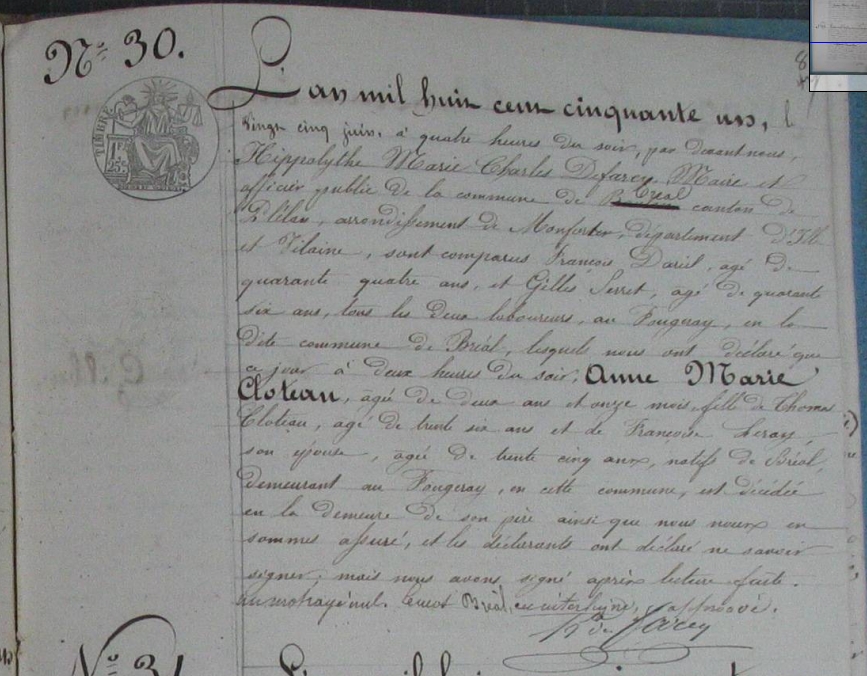 N° 30.
TIMBRE
1F 25c
L'an mil huit cent cinquante un, l
vingt cinq juin, à quatre heures du soir, par devant nous,
Hippolythe Marie Charles Defarcy, Maire et
officier public de la commune de Bréal canton de
Plélan, arrondissement de Montfort, département d'Ille
et Vilaine, sont comparus François Dariel, agé de
quarante quatre ans, et Gilles Serret, agé de quarante
six ans, tous les deux laboureurs, au Fougeray, en la
dite commune de Bréal, lesquels nous ont déclaré que
ce jour à deux heures du soir, Anne Marie
Cloteau, agée de deux ans et onze mois, fille de Thomas
Cloteau, agé de trente six ans et de Françoise Leray,
son épouse, agée de trente cinq ans, natifs de Bréal,
demeurant au Fougeray, en cette commune, est décédée
en la demeure de son père ainsi que nous nous en
sommes assuré, et les déclarants ont déclaré ne savoir
signer; mais nous avons signé après lecture faite.
un mot rayé nul. Le mot Bréal, en interligne, approuvé.
H de Farcy
N° 31